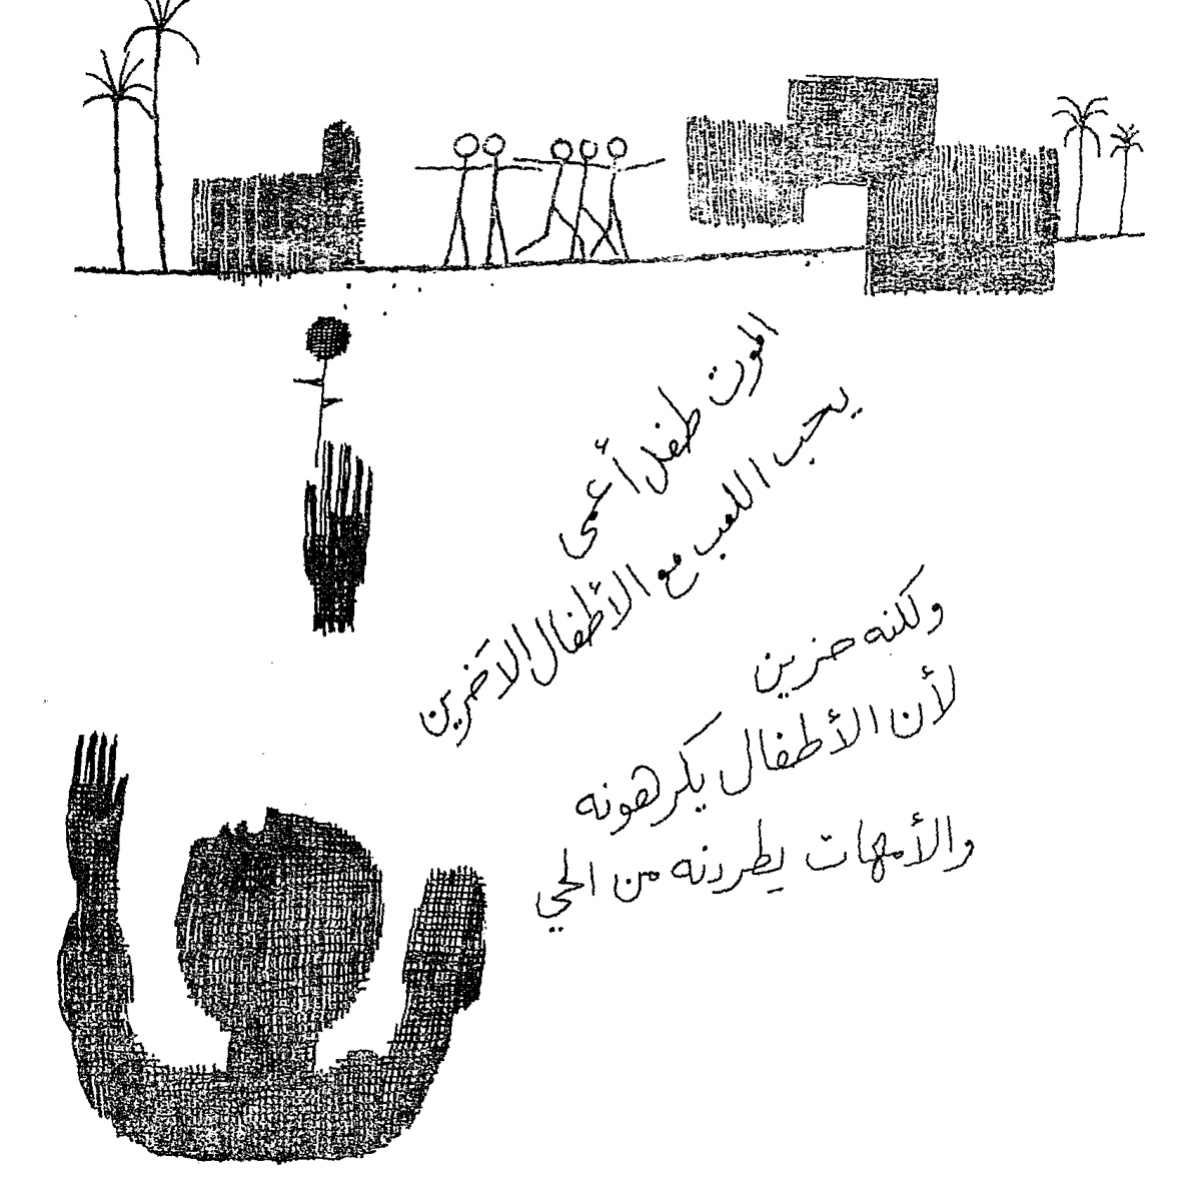 الموت طفل أعمى
يحب اللعب مع الأطفال الآخرين
ولكنه حزين
لأن الأطفال يكرهونه
والأمهات يطردنه من الحي